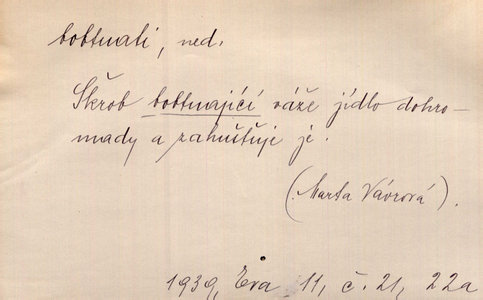 bobtnati, ned.
Škrob bobtnající váže jídlo dohro-
mady a zahušťuje je.
(Marta Vávrová).
1939, Eva 11, č. 21, 22a